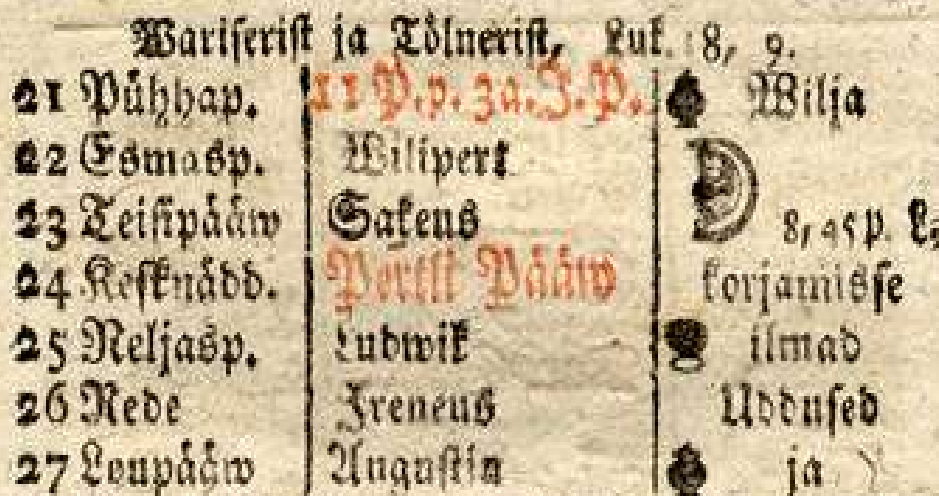 Wariserist ja Tölnerist, Luk. 18, 9.
21 Pühhap. 11 P. p. 3a. J. P. Wilja
22 Esmasp. Wilipert
23 Teisipääw Sakeus 8, 45 p. L
24 Kesknädd. Pertli Pääw korjamisse
25 Neljasp. Ludwik ilmad
26 Rede Ireneus Uddused
27 Loupääw Augustin ja